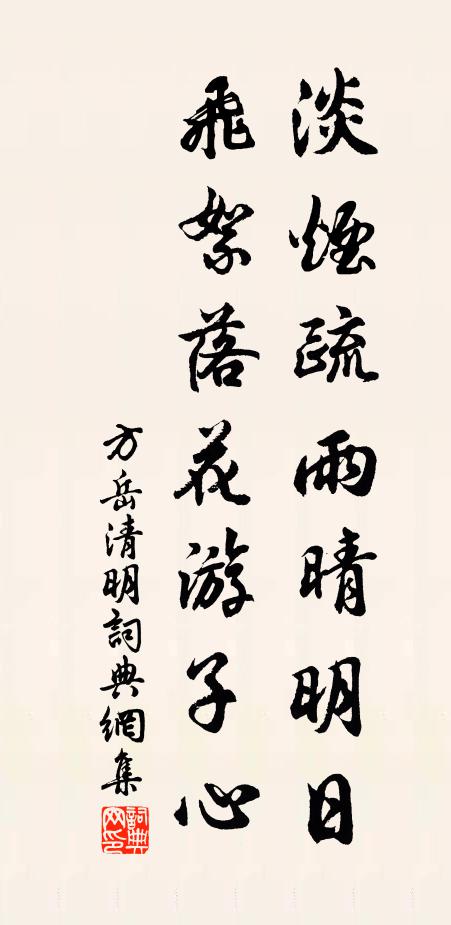 淡煙疏雨晴明日
飛絮落花游子心
方岳清明詞典網集
詞典网印